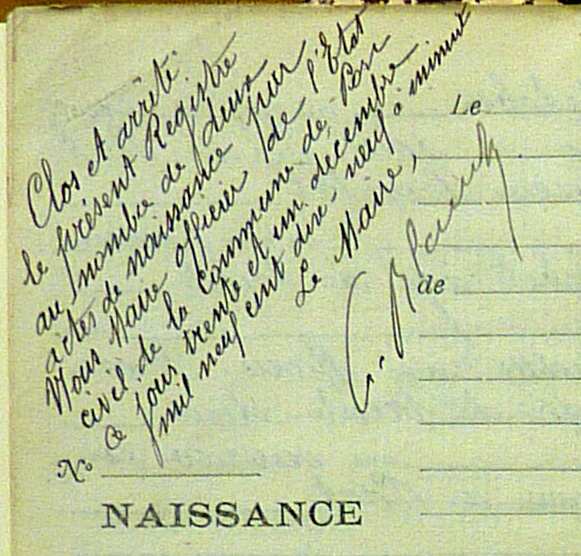 Clos et arrêté
le présent Registre
au nombre de deux
actes de naissance par
Nous Maire officier de l'Etat
civil de la commune de
Ce jour trente et un décembre
mil neuf cent dix-neuf à minuit
Le Maire,
Le
de
No
NAISSANCE